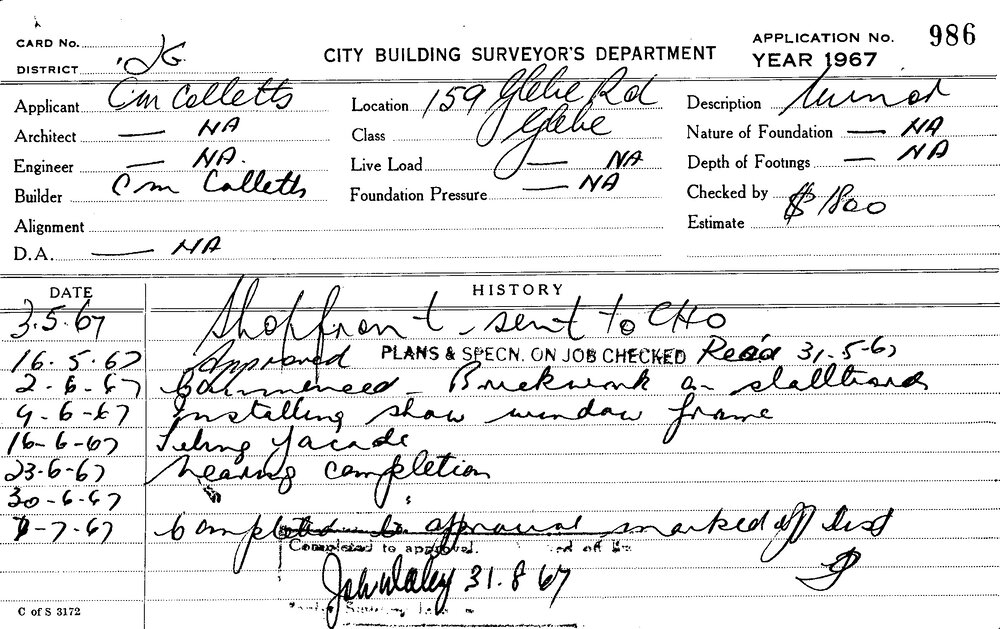 CARD No.
DISTRICT
CITY BUILDING SURVEYOR'S DEPARTMENT
APPLICATION No. 986
YEAR 1967
Applicant Cm Colletts
Location 159 Glebe Rd
Glebe
Description Minor
Architect — NA
Class
Nature of Foundation — NA
Engineer — NA.
Live Load — NA
Depth of Footings — NA
Builder Cm Colletts
Foundation Pressure — NA
Checked by
Alignment
Estimate $1800
D.A. — NA
DATE HISTORY
3.5.67 Shopfront - sent to CHO
16.5.67 Approved PLANS & SPECN. ON JOB CHECKED Read 31-5-67
2-6-67 Commenced - Brickwork on stallboard
9-6-67 Installing show window frame
16-6-67 Tiling facade
23-6-67 Nearing completion
30-6-67
7-7-67 Completed to approval marked off list
Completed to approval.
31.8.67
C of S 3172